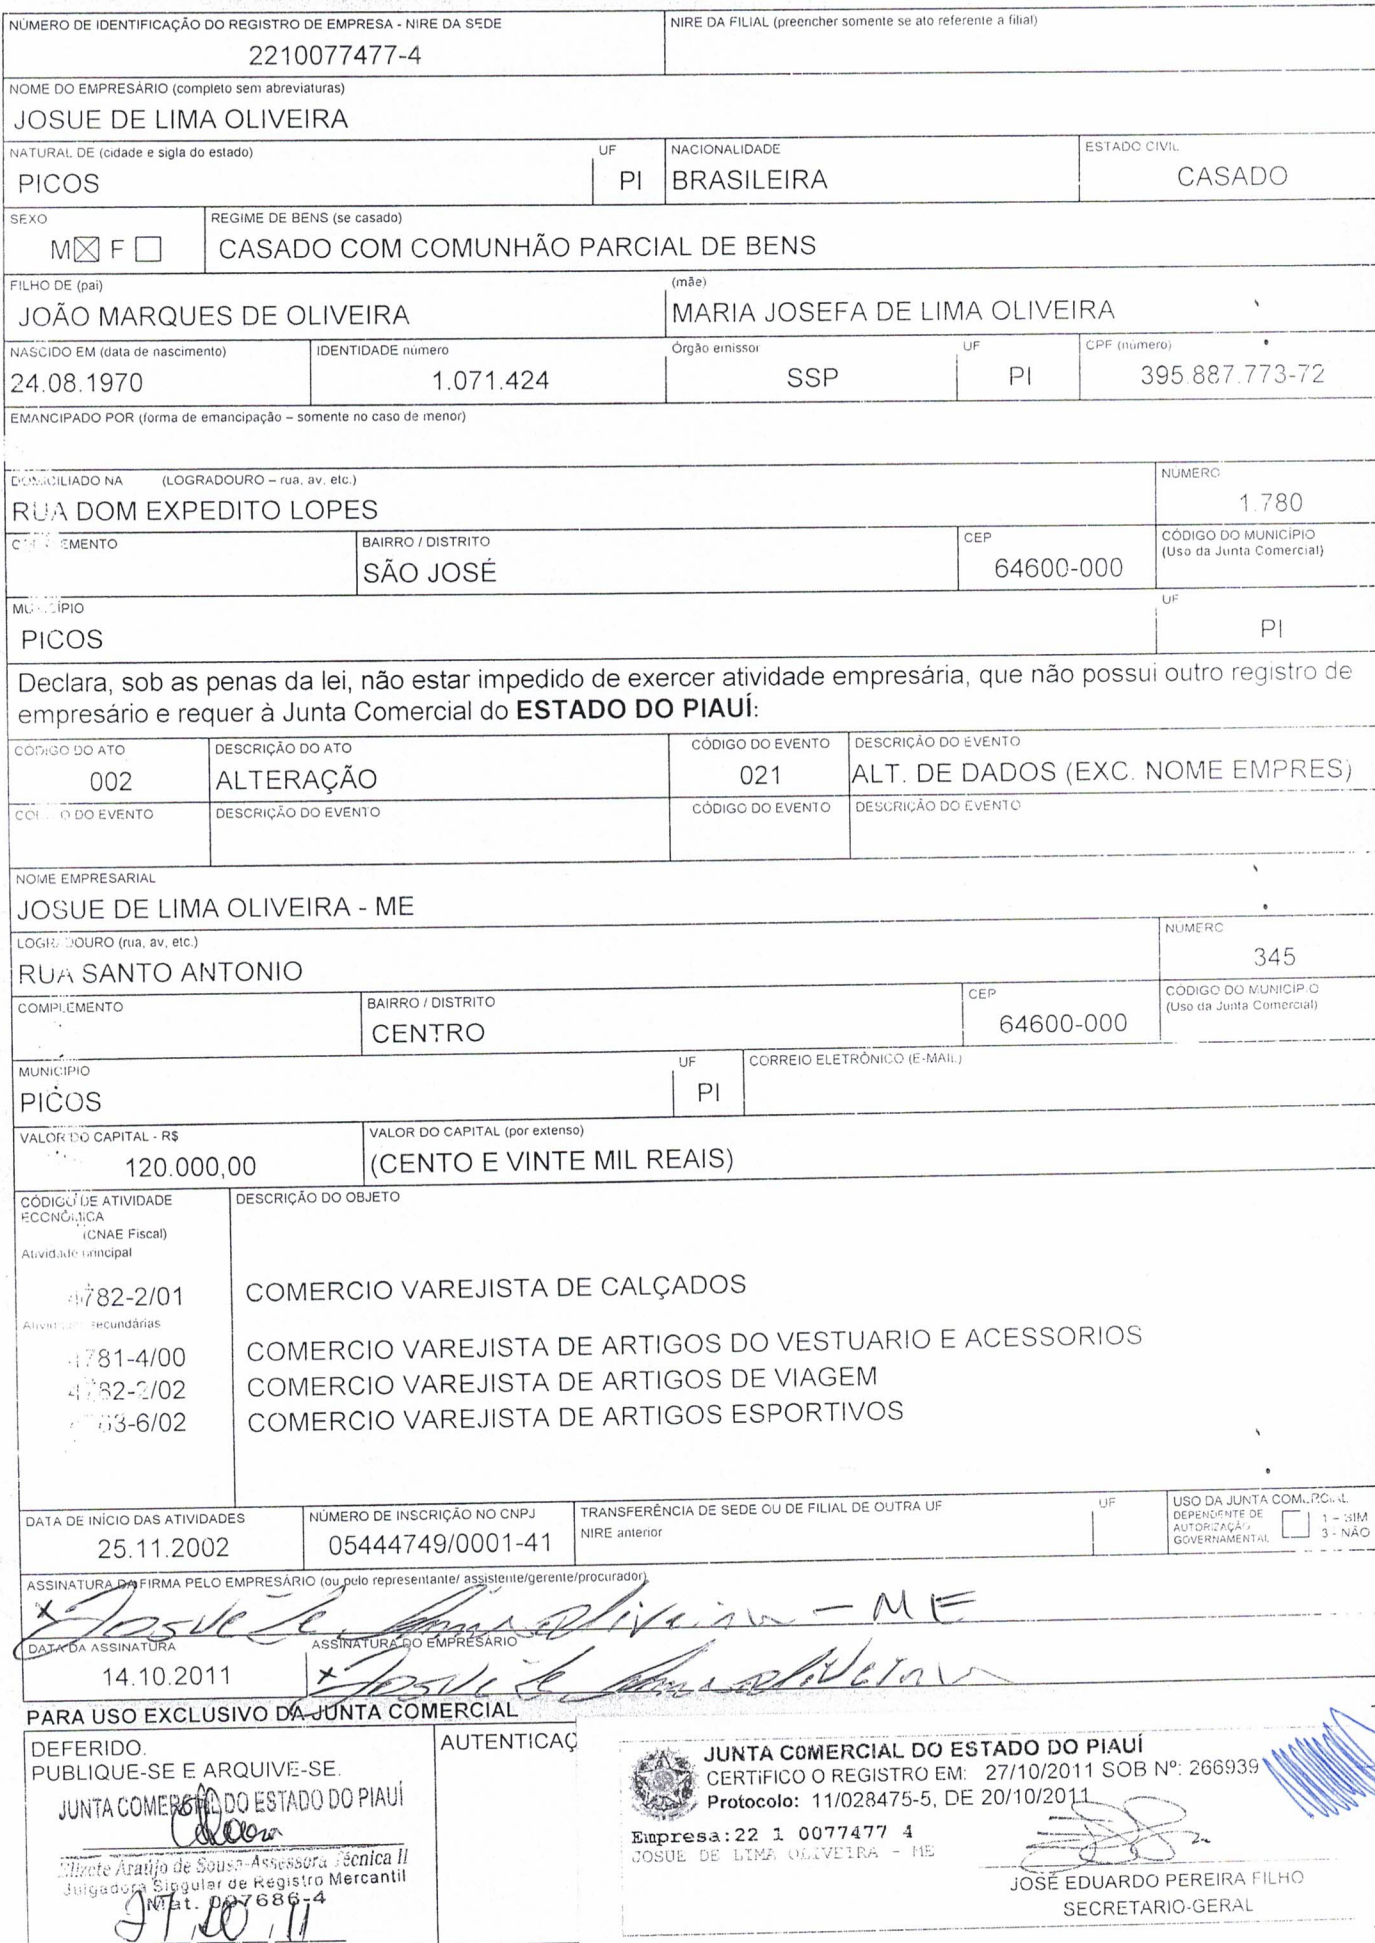 NÚMERO DE IDENTIFICAÇÃO DO REGISTRO DE EMPRESA - NIRE DA SEDE
2210077477-4
NIRE DA FILIAL (preencher somente se ato referente a filial)
NOME DO EMPRESÁRIO (completo sem abreviaturas)
JOSUE DE LIMA OLIVEIRA
NATURAL DE (cidade e sigla do estado)
PICOS
UF
PI
NACIONALIDADE
BRASILEIRA
ESTADO CIVIL
CASADO
SEXO
M☒ F☐
REGIME DE BENS (se casado)
CASADO COM COMUNHÃO PARCIAL DE BENS
FILHO DE (pai)
JOÃO MARQUES DE OLIVEIRA
(mãe)
MARIA JOSEFA DE LIMA OLIVEIRA
NASCIDO EM (data de nascimento)
24.08.1970
IDENTIDADE número
1.071.424
Órgão emissor
SSP
UF
PI
CPF (número)
395.887.773-72
EMANCIPADO POR (forma de emancipação – somente no caso de menor)
DOMICILIADO NA (LOGRADOURO – rua, av, etc.)
RUA DOM EXPEDITO LOPES
NUMERO
1.780
COMPLEMENTO
BAIRRO / DISTRITO
SÃO JOSÉ
CEP
64600-000
CÓDIGO DO MUNICÍPIO
(Uso da Junta Comercial)
MUNICÍPIO
PICOS
UF
PI
Declara, sob as penas da lei, não estar impedido de exercer atividade empresária, que não possui outro registro de
empresário e requer à Junta Comercial do ESTADO DO PIAUÍ:
CÓDIGO DO ATO
002
DESCRIÇÃO DO ATO
ALTERAÇÃO
CÓDIGO DO EVENTO
021
DESCRIÇÃO DO EVENTO
ALT. DE DADOS (EXC. NOME EMPRES)
CÓDIGO DO EVENTO
DESCRIÇÃO DO EVENTO
CÓDIGO DO EVENTO
DESCRIÇÃO DO EVENTO
NOME EMPRESARIAL
JOSUE DE LIMA OLIVEIRA - ME
LOGRADOURO (rua, av, etc.)
RUA SANTO ANTONIO
NUMERO
345
COMPLEMENTO
BAIRRO / DISTRITO
CENTRO
CEP
64600-000
CÓDIGO DO MUNICÍPIO
(Uso da Junta Comercial)
MUNICÍPIO
PICOS
UF
PI
CORREIO ELETRÔNICO (E-MAIL)
VALOR DO CAPITAL - R$
120.000,00
VALOR DO CAPITAL (por extenso)
(CENTO E VINTE MIL REAIS)
CÓDIGO DE ATIVIDADE
ECONÔMICA
(CNAE Fiscal)
Atividade principal
DESCRIÇÃO DO OBJETO
4782-2/01 COMERCIO VAREJISTA DE CALÇADOS
Atividades secundárias
4781-4/00 COMERCIO VAREJISTA DE ARTIGOS DO VESTUARIO E ACESSORIOS
4782-2/02 COMERCIO VAREJISTA DE ARTIGOS DE VIAGEM
COMERCIO VAREJISTA DE ARTIGOS ESPORTIVOS
DATA DE INÍCIO DAS ATIVIDADES
25.11.2002
NÚMERO DE INSCRIÇÃO NO CNPJ
05444749/0001-41
TRANSFERÊNCIA DE SEDE OU DE FILIAL DE OUTRA UF
NIRE anterior
UF
USO DA JUNTA COMERCIAL
DEPENDENTE DE
AUTORIZAÇÃO
GOVERNAMENTAL
1 – SIM
3 - NÃO
ASSINATURA DA FIRMA PELO EMPRESÁRIO (ou pelo representante/ assistente/gerente/procurador)
x Josué de Lima Oliveira - ME
DATA DA ASSINATURA
14.10.2011
ASSINATURA DO EMPRESÁRIO
x Josué de Lima Oliveira
PARA USO EXCLUSIVO DA JUNTA COMERCIAL
DEFERIDO.
PUBLIQUE-SE E ARQUIVE-SE.
JUNTA COMERCIAL DO ESTADO DO PIAUÍ
Elizete Araújo de Sousa-Assessora Técnica II
Julgadora Singular de Registro Mercantil
Mat. 007686-4
27 10 11
AUTENTICAÇ
JUNTA COMERCIAL DO ESTADO DO PIAUÍ
CERTIFICO O REGISTRO EM: 27/10/2011 SOB Nº: 266939
Protocolo: 11/028475-5, DE 20/10/2011
Empresa:22 1 0077477 4
JOSUE DE LIMA OLIVEIRA - ME
JOSÉ EDUARDO PEREIRA FILHO
SECRETARIO-GERAL